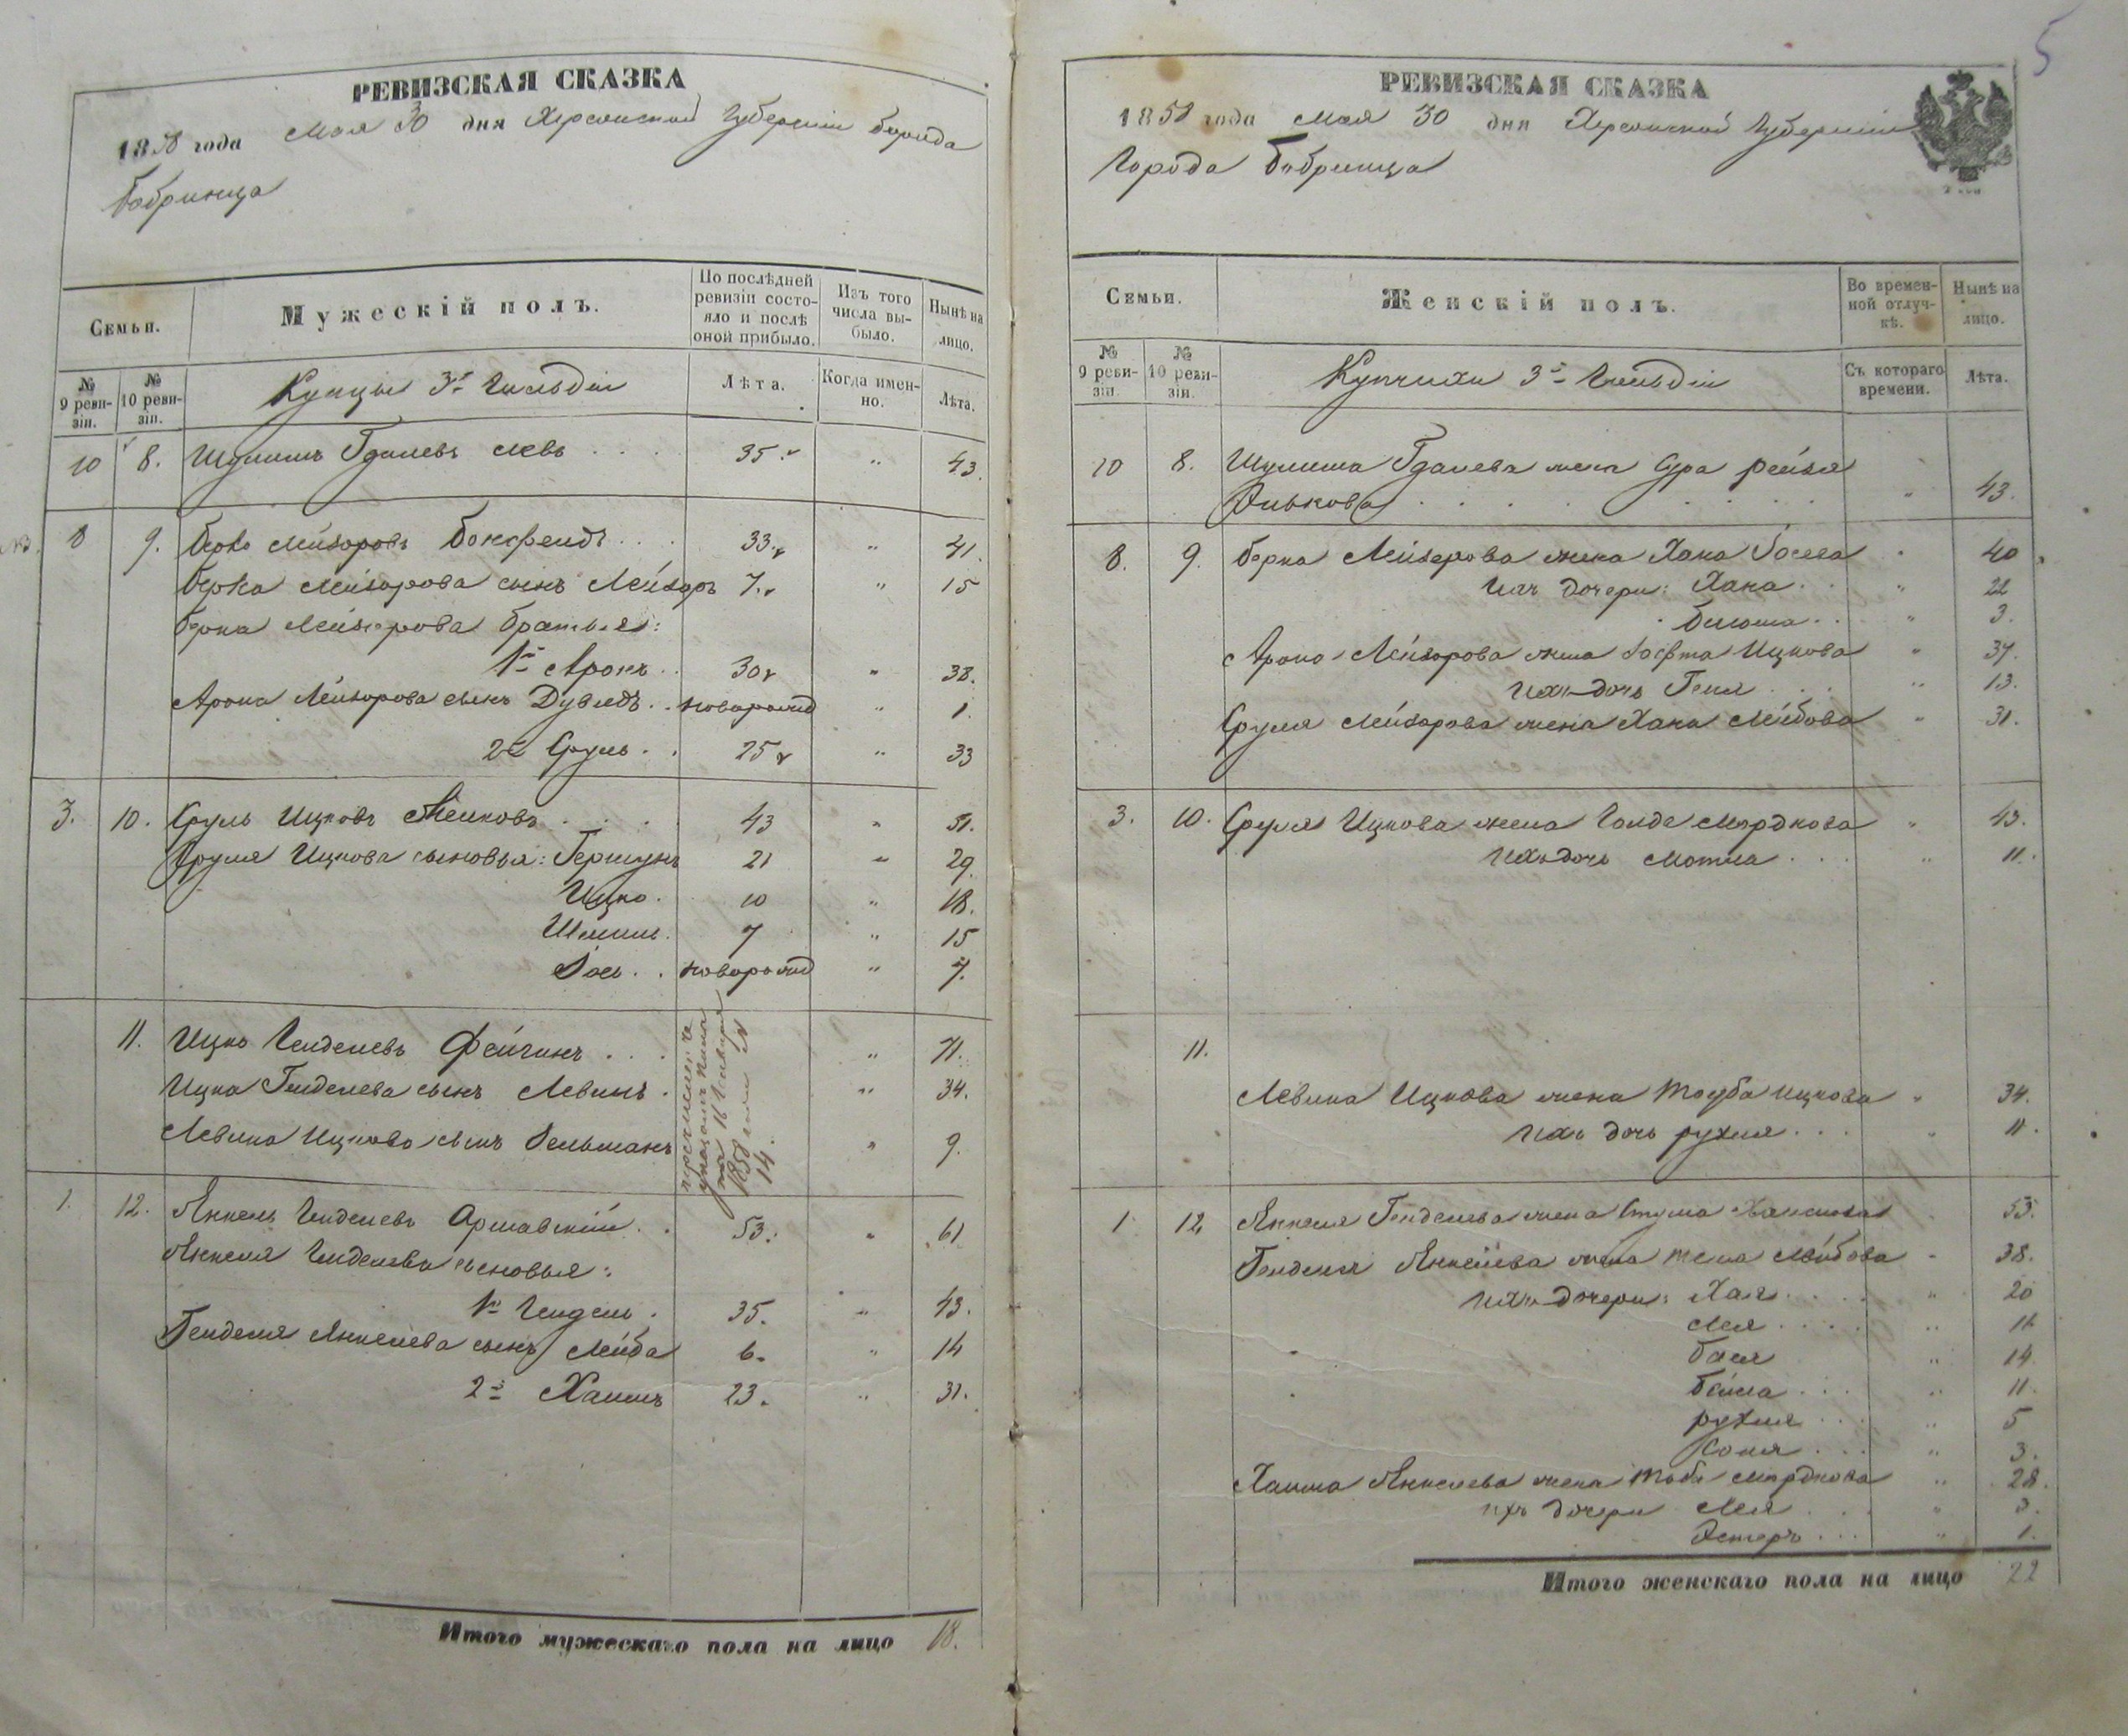 РЕВИЗСКАЯ СКАЗКА
1858 года Мая 30 дня Херсонской Губерніи города
Бобринца
Семьи.
Мужескій полъ.
По послѣдней ревизіи состояло и послѣ оной прибыло.
Изъ того числа выбыло.
Нынѣ на лицо.
№ 9 ревизіи.
№ 10 ревизіи.
Купцы 3й Гильдіи
Лѣта.
Когда именно.
Лѣта.
10 8. Шулимъ Гдалевъ . . . 35. " 43.
8 9. Берко Лейзоровъ . . . 33. " 41.
Берка Лейзорова сынъ Лейзоръ 7. " 15
Берка Лейзорова братья:
1й Аронъ . . 30 " 38.
Арона Лейзорова сынъ Дувидъ . . новорожд " 1.
2й Сруль . . 25 " 33
3. 10. Сруль Ицковъ . . . 43 " 51.
Сруля Ицкова сыновья: Гершунъ 21 " 29.
Ицко . 10 " 18.
7 " 15
Іось . . новорожд " 7.
11. Ицко Генделевъ Фейгинъ . . . " 71.
Ицка Генделева сынъ Левинъ . " 34.
Левина Ицкова сынъ " 9.
1858 года
14.
1. 12. Янкель Генделевъ Аршавскій . . 53. " 61
Янкеля Генделева сыновья:
1й Гендель . 35. " 43.
Генделя Янкелева сынъ Лейба 6. " 14
2й Хаимъ 23. " 31.
Итого мужескаго пола на лицо 18.
5
РЕВИЗСКАЯ СКАЗКА
1858 года Мая 30 дня Херсонской Губерніи
Города Бобринца
Семьи.
Женскій полъ.
Во временной отлучкѣ.
Нынѣ на лицо.
№ 9 ревизіи.
№ 10 ревизіи.
Купчихи 3й Гильдіи
Съ котораго времени.
Лѣта.
10 8. Шулима Гдалева жена Сура Рейзя
. . . . " 43.
8. 9. Берка Лейзерова жена Хана Іосева " 40
Ихъ дочери: Хана . . " 22
. . " 3.
Арона Лейзорова жена Ицкова " 37.
Ихъ дочь Геня . . . " 13.
Сруля Лейзорова жена Хана Лейбова " 31.
3. 10. Сруля Ицкова жена Голда Мордкова " 43.
Ихъ дочь . . . " 11.
11.
Левина Ицкова жена Тауба Ицкова " 34.
Ихъ дочь Рухля . . . " 11.
1 12 Янкеля Генделева жена " 53.
Генделя Янкелева жена Лейбова " 38.
Ихъ дочери: Хая . . . . " 20
Лея . . . . "
Бася " 14
Бейла . . . " 11.
Рухля . . . " 5
Соня . . . " 3.
Хаима Янкелева жена Мордкова " 28.
Ихъ дочери Лея . . . " 3.
Эстеръ . . . " 1.
Итого женскаго пола на лицо 22